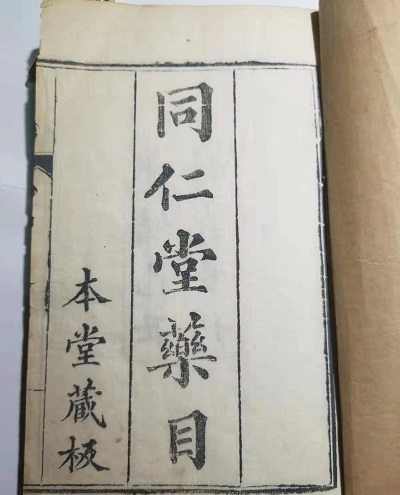 同仁堂藥目
本堂藏板